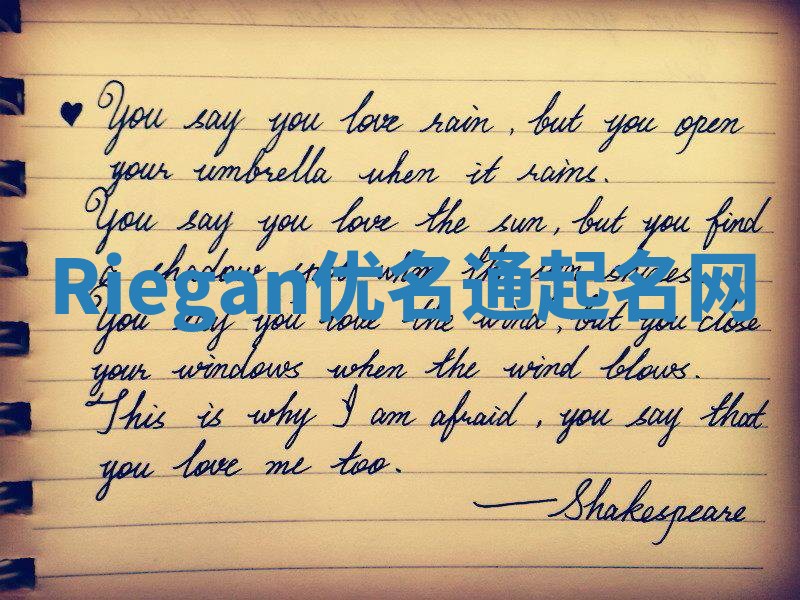 ♥ You say you love rain, but you open
your umbrella when it rains.
You say you love the sun, but you find
a shadow spot when the sun shines.
Riegan优名通起名网
You say you love the wind, but you close
your windows when the wind blows.
This is why I am afraid, you say that
you love me too.
—Shakespeare